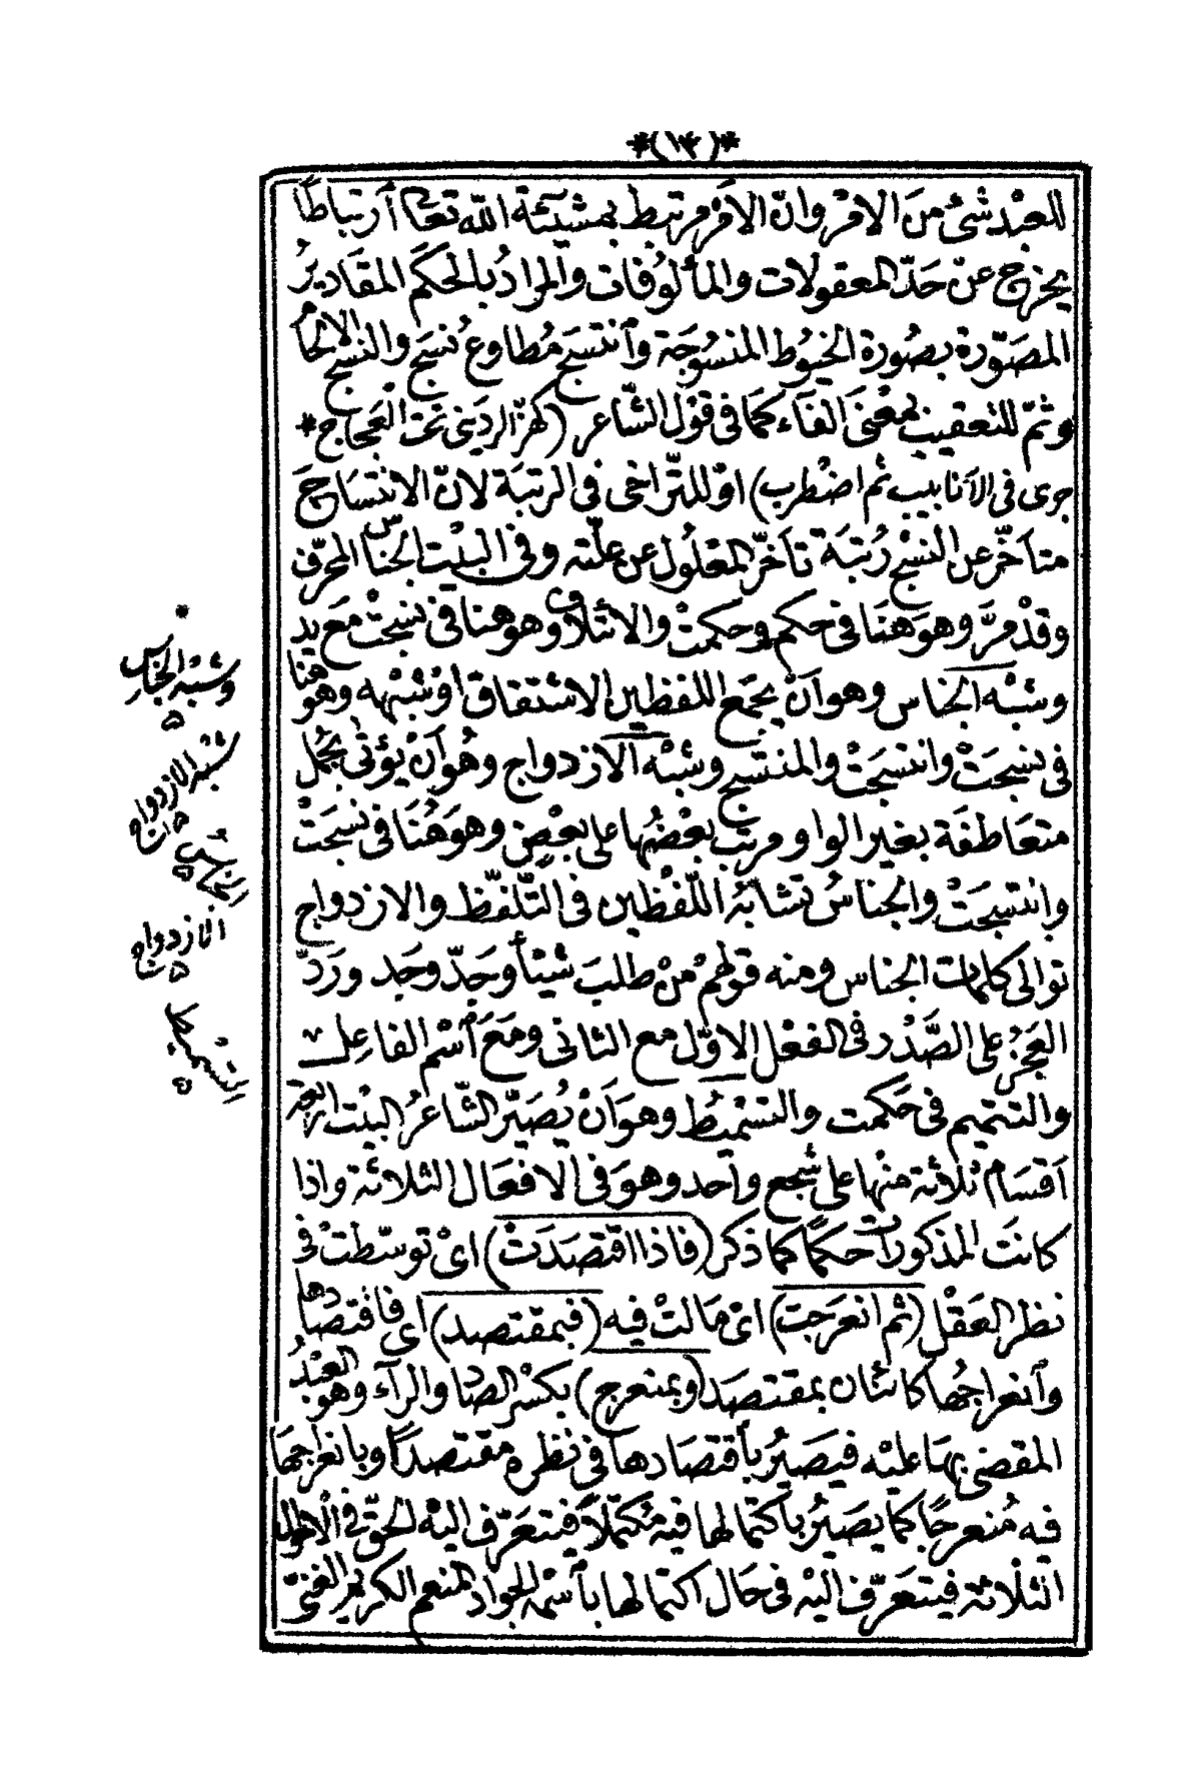 *(١٣)*
للعبْد شئ منَ الامْر وانّ الاَمْر مرتبط بمشيئة اللّٰه تعالى اَرتباطًا
يخرج عنْ حَدّ المعقولات والمأْلوُفات والمرادُ بالحكَم المقاديرُ
المصَوّرة بصُورة الخيُوط المنسُوجَة وَاَنتسَج مُطاوعُ نسَج والنسْج الالحَامُ
وثمّ للتعقيب بمعْنىَ الفاَء كمَا فى قوْل الشّاعر (كهزّ الردَينى تحْت العَجاج*
جرى فى الاَنابيب ثم اضْطرب) اوْ للترّاخى فى الرتبَة لانّ الانتسَاجَ
متاَخّر عن النسْج رُتبَة تاَخّر المعْلُول عن علّته وفى البيْت الجناسُ المحرّف
وقدْ مرَّ وهوَ هنَا فى حكم وحكمتْ والائتلاف وهو هنا فى نسجتْ معَ يد
وشبْه الجناس وهو اَنْ يجمَع اللفظين الاشتقاق اوْ شبْهه وهو هنا
فى نسجَتْ وانتسجَتْ والمنتسج وشبْه الازدواج وهُو اَنْ يؤتى بجُمل
متعَاطفَة بغير الواو مرتّب بعْضُها على بعْض وهوَ هُنَا فى نسَجَتْ
وانتسجَتْ والجناسُ تشابُه اللّفْظين فى التّلفّظ والازدواج
توالى كلمات الجناس ومنه قولهمْ منْ طلبَ شيئاً وجَدّ وجَد وردّ
العَجزْ على الصَّدْر فى الفعْل الاوّل مع الثانى ومَعَ اَسْم الفاعل
والتتميم فى حَكمت والتسْميُط وهوَ اَنْ يُصَيّر الشّاعرُ البيْت اربعَة
اَقسَام ثلاثة منْها على سْجع واحد وهوَ فى الافعَال الثلاثة واذا
كانتَ المذكورات حكمًا كما ذكر (فاذا اقتصَدَتْ) اىْ توسّطتْ فى
نظر العَقْل (ثم انعرَجت) اىْ مَالتْ فيه (فبمقتصد) اى فاقتصادها
واَنعراجُها كائنان بمقتصَد (وبمنعرج) بكسْر الصّاد والرآء وهو العبْدُ
المقضى بهَا عليْه فيصَيُر باَقتصَادهَا فى نظره مقتصداً وبانعرَاجهَا
فيه مُنعرجًا كما يصَيُر باكتمالها فيه مُكتملاً فيتعَرّف اليْه الحَقّ فى الاَحوال
الثلاثة فيتعَرّف اليْه فى حَال اكتمالها باَسْمه الجواد المنعم الكريم الغنىّ
*
وشبْه الجناس
شبْه الازدواج
الجناس
الازدواج
التسْميط